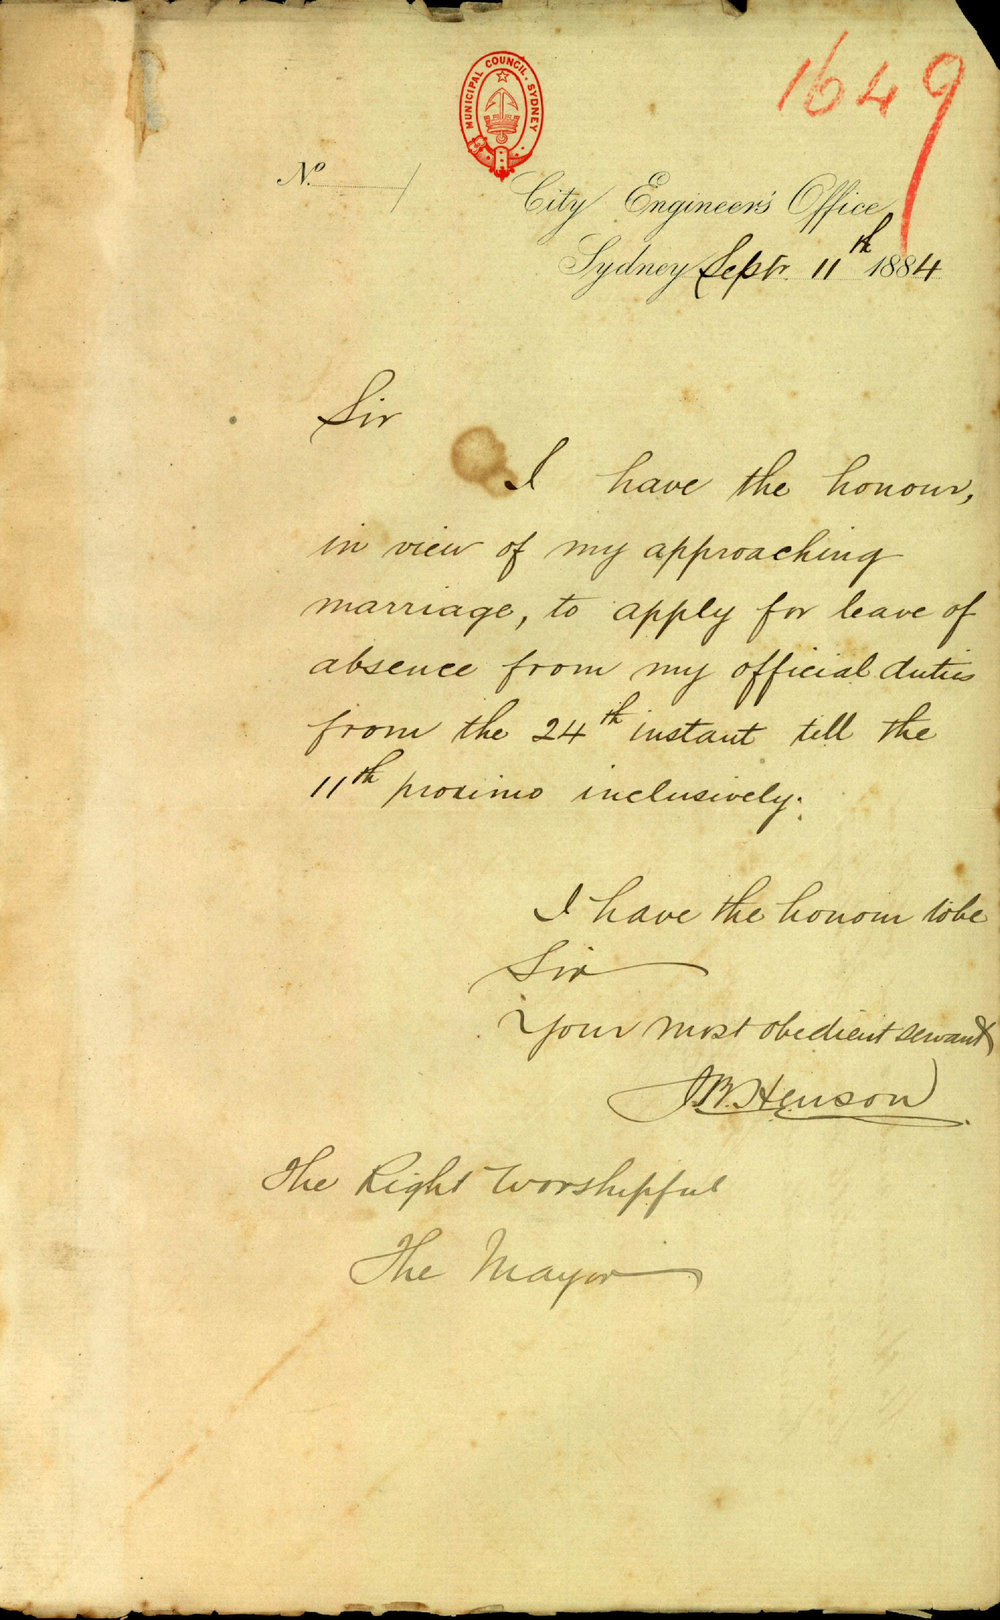 1649
MUNICIPAL COUNCIL, SYDNEY
No. /
City Engineer's Office
Sydney Septr. 11th 1884
Sir
I have the honour,
in view of my approaching
marriage, to apply for leave of
absence from my official duties
from the 24th instant till the
11th proximo inclusively.
I have the honour to be
Sir
Your most obedient servant
J.B. Henson
The Right Worshipful
The Mayor